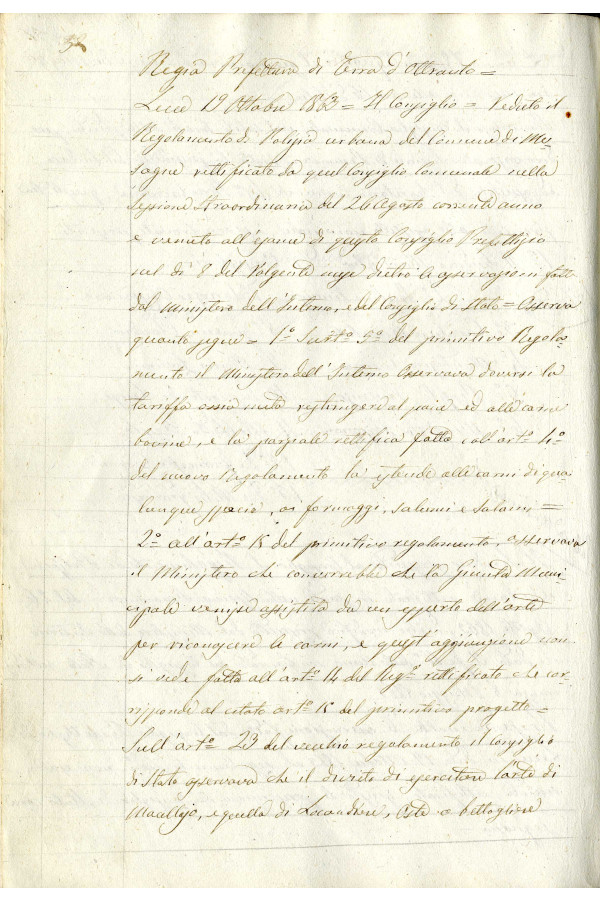 Regia Prefettura di Terra d'Otranto =
Lecce 19 Ottobre 1863 = Il Consiglio = Veduto il
Regolamento di Polizia urbana del Comune di Me-
sagne rettificato da quel Consiglio Comunale nella
Sessione straordinaria del 26 Agosto corrente anno
e venuto all'esame di questo Consiglio Prefettizio
nel dì 8 del volgente mese dietro le osservazioni fatte
dal Ministero dell'Interno, e del Consiglio di Stato = Osserva
quanto segue = 1º Sull'artº 5º del primitivo Regola-
mento il Ministero dell'Interno osservava doversi la
tariffa ossia meta restringere al pane ed alle carni
bovine, e la parziale rettifica fatta coll'artº 4º
del nuovo Regolamento la estende alle carni di qua-
lunque specie, ai formaggi, salumi e salami =
2º all'artº 15 del primitivo regolamento, osservava
il Ministero che converrebbe che la Giunta Muni-
cipale venisse assistita da un esperto dell'arte
per riconoscere le carni, e quest'aggiunzione non
si vede fatta all'artº 14 del Regº rettificato che cor-
risponde al citato artº 15 del primitivo progetto =
Sull'artº 23 del vecchio regolamento il Consiglio
di Stato osservava che il divieto di esercitare l'arte di
Macellajo, e quella di Locandiere, Oste o bettogliere